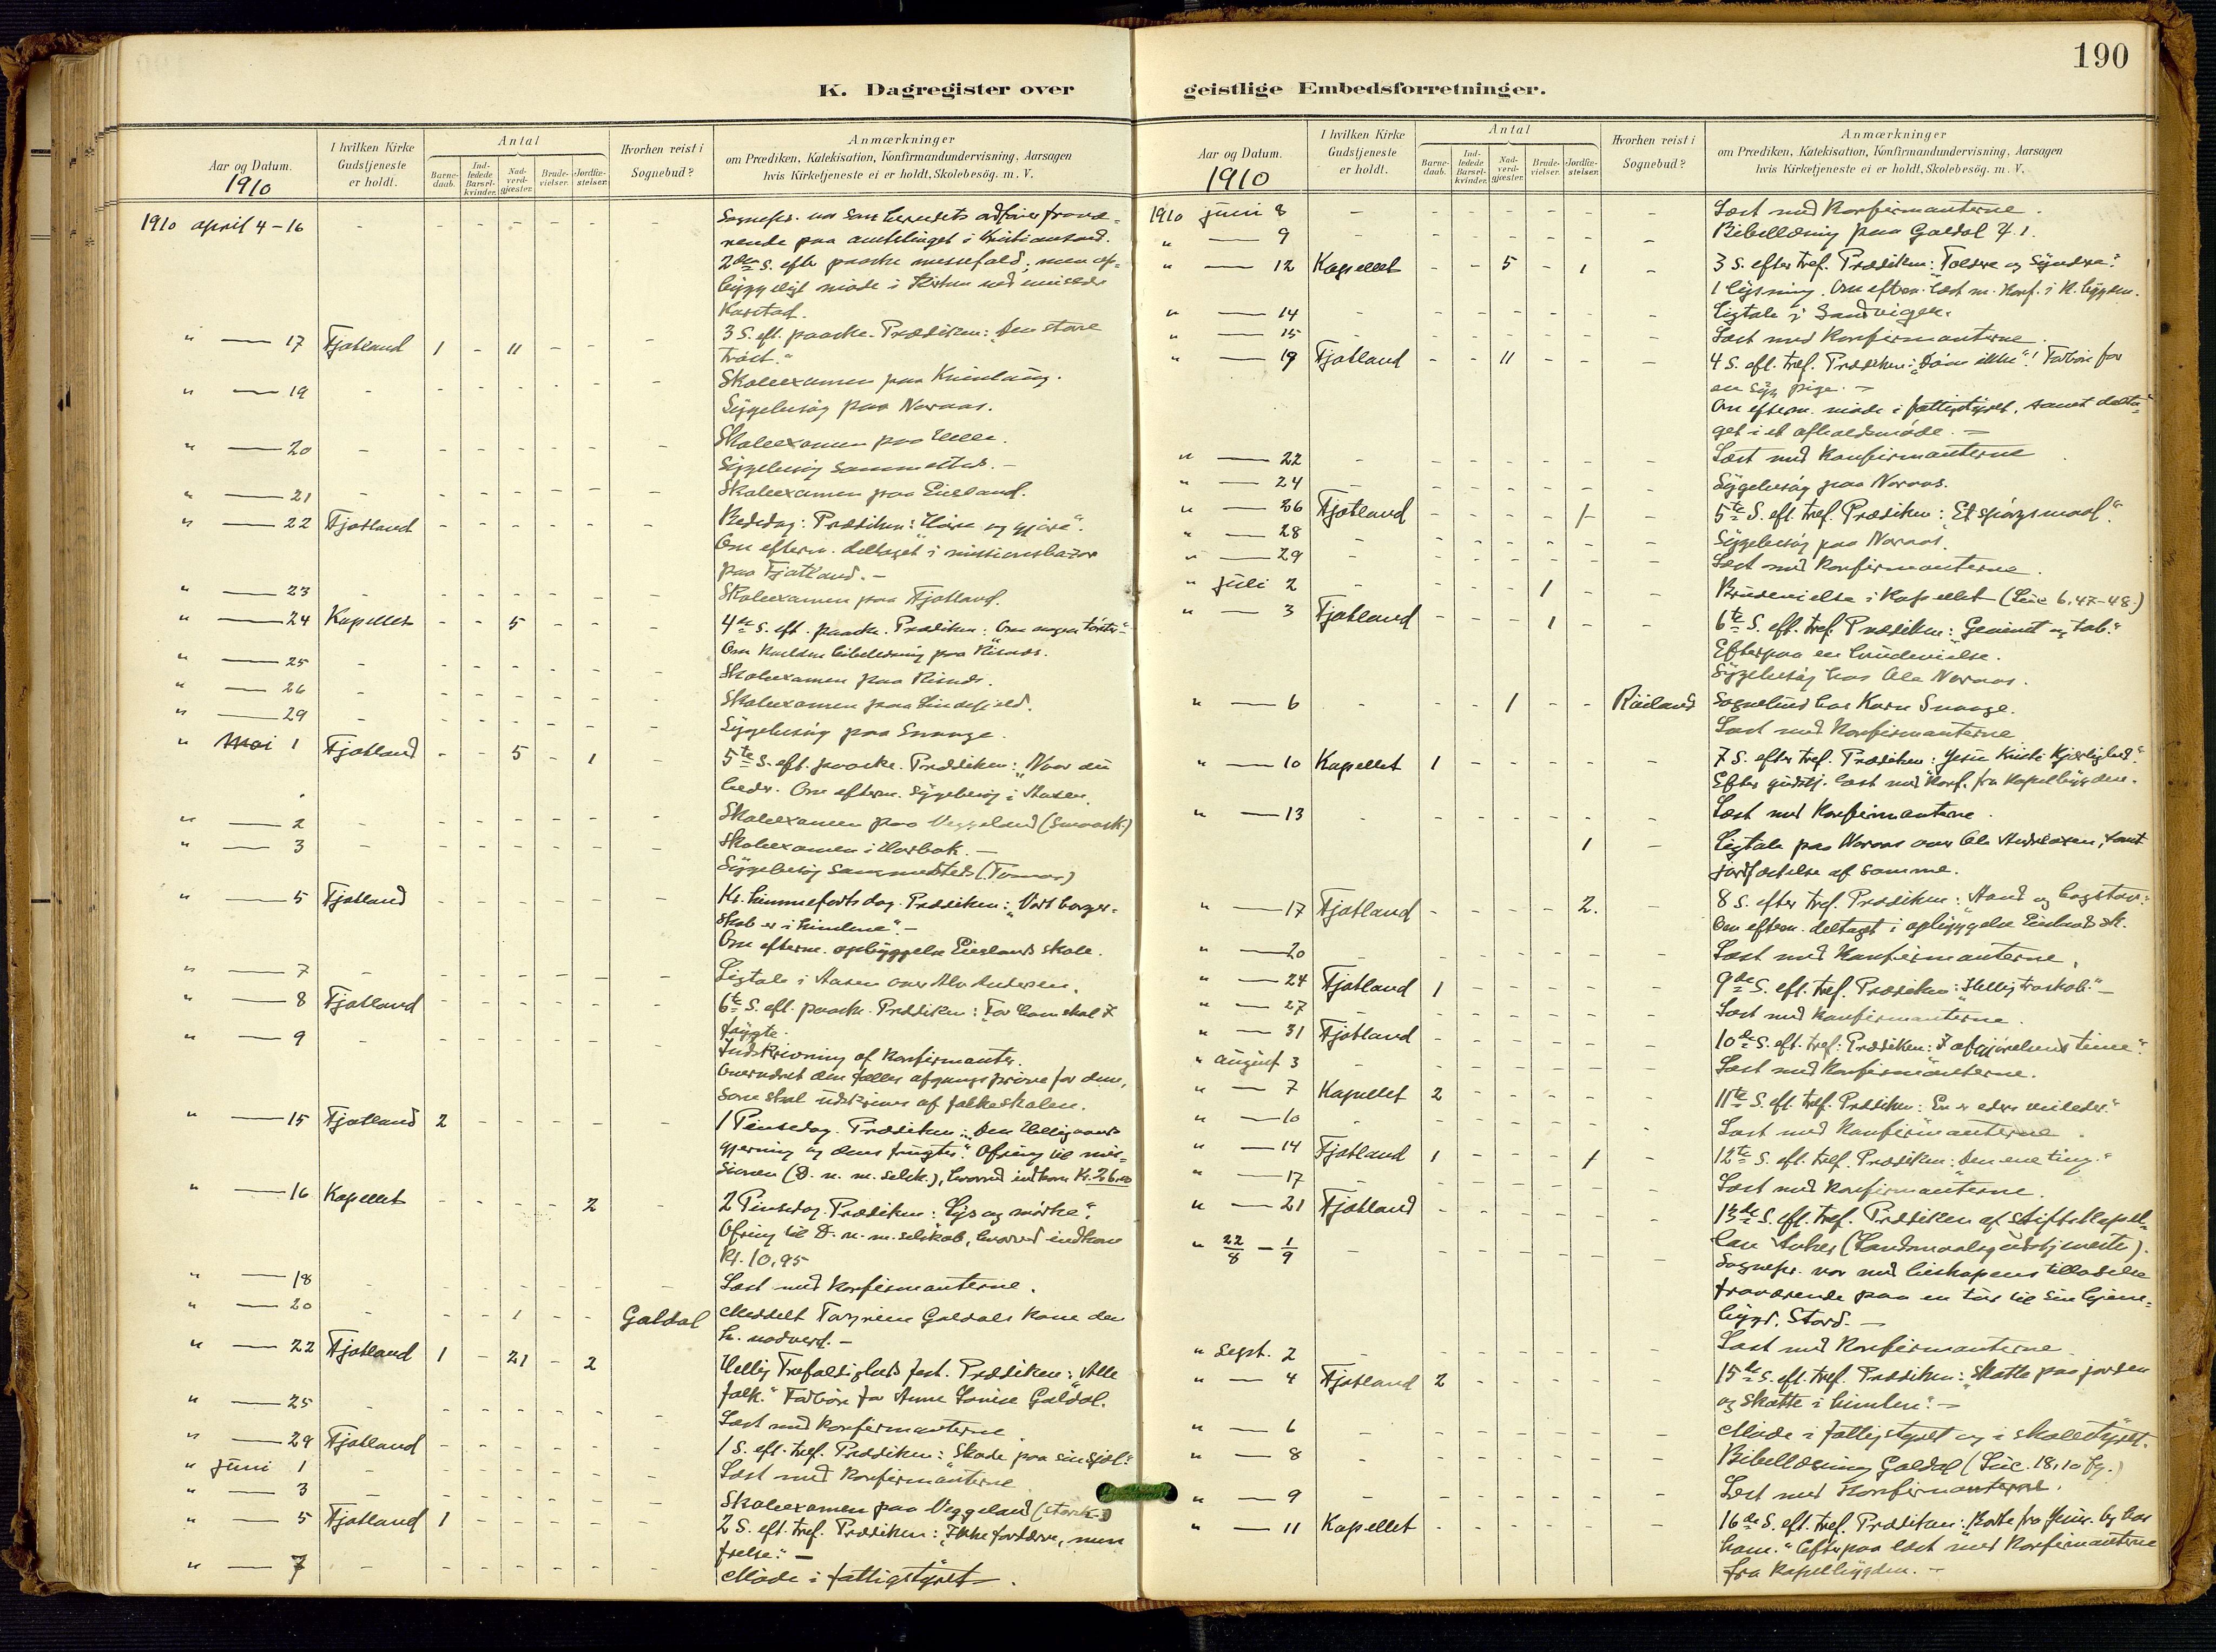 190
K. Dagregister over geistlige Embedsforretninger.
Aar og Datum. 1910
I hvilken Kirke Gudstjeneste er holdt.
Antal
Barnedaab.
Indledede Barselkvinder.
Nadverdgjæster.
Brudevielser.
Jordfæstelser.
Hvorhen reist i Sognebud?
Anmærkninger
om Prædiken, Katekisation, Konfirmandundervisning, Aarsagen
hvis Kirketjeneste ei er holdt, Skolebesög. m. V.
1910 april 4-16 - - - - - - - Sognepr. var som ordfører fravæ-
rende paa amtstinget i Kristianssand.
2den S. efter paaske messefald; men op-
byggeligt møde i Kirken ved emissær
Karstad.
" — 17 Fjotland 1 - 11 - - - 3 S. eft. paaske. Prædiken: "Den store
trøst."
" — 19 - - - - - - - Skoleexamen paa
Sygebesøg paa Noraas.
" — 20 - - - - - - - Skoleexamen paa Helle.
Sygebesøg sammesteds. -
" — 21 - - - - - - - Skoleexamen paa Eieland.
" — 22 Fjotland - - - - - - Bededag: Prædiken: "Høre og gjøre".
Om efterm. deltaget i missionsbazar
paa Fjotland. -
" — 23 - - - - - - - Skoleexamen paa Fjotland.
" — 24 Kapellet - - 5 - - - 4de S. eft. paaske. Prædiken: "Om nogen tørster"
Om kvelden bibellæsning paa Risnæs.
" — 25 - - - - - - - Skoleexamen paa Risnæs.
" — 26 - - - - - - - Skoleexamen paa Lindefjeld.
" — 29 - - - - - - - Sygebesøg paa Svange.
" Mai 1 Fjotland - - 5 - 1 - 5te S. eft. paaske. Prædiken: "Naar du
beder. Om efterm. Sygebesøg i Aasen.
" — 2 - - - - - - - Skoleexamen paa Veggeland (Smaask.)
" — 3 - - - - - - - Skoleexamen i Knabak. -
Sygebesøg sammesteds.
" — 5 Fjotland - - - - - - Kr. himmelfartsdag. Prædiken: "Vort borger-
skab er i himlene". -
Om efterm. opbyggelse Eielands skole.
" — 7 - - - - - - - Ligtale i Aasen over Andersen.
" — 8 Fjotland - - - - - - 6te S. eft. paaske. Prædiken: "For ham skal I
frygte.
" — 9 - - - - - - - Indskrivning af konfirmanter.
Overværet den fælles afgangsprøve for dem,
som skal udskrives af folkeskolen.
" — 15 Fjotland 2 - - - - - 1 Pinsedag. Prædiken: "Den Helligaands
gjerning og dens frugter." Ofring til mis-
sionen (D. n. m. selsk.), hvorved indkom Kr. 26,00
" — 16 Kapellet - - - - 2 - 2 Pinsedag. Prædiken: "Lys og mørke".
Ofring til D. n. m. selskab, hvorved indkom
Kr. 10,95
" — 18 - - - - - - - Læst med konfirmanterne.
" — 20 - - - 1 - - Galdal Meddelt Galdals kone den
h. nadverd. -
" — 22 Fjotland 1 - 21 - 2 Hellig Trefoldigheds fest. Prædiken: "Alle
folk." Forbøn for Anne Lovise Galdal.
" — 25 - - - - - - - Læst med konfirmanterne
" — 29 Fjotland - - - - - - 1 S. eft. tref. Prædiken: "Skade paa sin sjæl."
" Juni 1 - - - - - - - Læst med konfirmanterne
" — 3 - - - - - - - Skoleexamen paa Veggeland (storsk.)
" — 5 Fjotland 1 - - - - - 2 S. eft. tref. Prædiken: "Ikke fordærve, men
frelse." -
" — 7 - - - - - - - Møde i fattigstyret.
Aar og Datum. 1910
I hvilken Kirke Gudstjeneste er holdt.
Antal
Barnedaab.
Indledede Barselkvinder.
Nadverdgjæster.
Brudevielser.
Jordfæstelser.
Hvorhen reist i Sognebud?
Anmærkninger
om Prædiken, Katekisation, Konfirmandundervisning, Aarsagen
hvis Kirketjeneste ei er holdt, Skolebesög. m. V.
1910 juni 8 - - - - - - - Læst med konfirmanterne.
" — 9 - - - - - - - Bibellæsning paa Galdal
" — 12 Kapellet - - 5 - 1 - 3 S. efter tref. Prædiken: "Toldere og Syndere".
1 lysning. Om efterm. læst m. konf. i K. bygden.
" — 14 - - - - - - - Ligtale i Sandvigen.
" — 15 - - - - - - - Læst med konfirmanterne.
" — 19 Fjotland - - 11 - - - 4 S. eft. tref. Prædiken: "Døm ikke"! Forbøn for
en syg pige. -
Om efterm. møde i fattigstyret, samt delta-
get i et afholdsmøde. -
" — 22 - - - - - - - Læst med konfirmanterne
" — 24 - - - - - - - Sygebesøg paa Noraas.
" — 26 Fjotland - - - - 1 - 5te S. eft. tref. Prædiken: "Et spørgsmaal".
" — 28 - - - - - - - Sygebesøg paa Noraas.
" — 29 - - - - - - - Læst med konfirmanterne.
" juli 2 - - - - 1 - - Brudevielse i Kapellet (Luc. 6,47-48.)
" — 3 Fjotland - - - 1 - - 6te S. eft. tref. Prædiken: "Gevinst og tab."
Efterpaa en brudevielse.
Sygebesøg hos Ole Noraas.
" — 6 - - - 1 - - Röiland Sognebud hos Karn Svange.
Læst med konfirmanterne
" — 10 Kapellet 1 - - - - - 7 S. efter tref. Prædiken: "Jesu Kristi Kjærlighed".
Efter gudstj. læst med konf. fra Kapelbygden.
" — 13 - - - - - - - Læst med konfirmanterne.
1 - Ligtale paa Noraas over Ole samt
jordfæstelse af samme.
" — 17 Fjotland - - - - 2. 8 S. efter tref. Prædiken: "Aand og bogstav".
Om efterm. deltaget i opbyggelse Eielands sk.
" — 20 - - - - - - - Læst med konfirmanterne.
" — 24 Fjotland 1 - - - - - 9de S. eft. tref. Prædiken: "Hellig troskab". -
" — 27 - - - - - - - Læst med konfirmanterne
" — 31 Fjotland - - - - - - 10de S. eft. tref. Prædiken: "I afgjørelsens time".
" august 3 - - - - - - - Læst med konfirmanterne.
" — 7 Kapellet 2 - - - - - 11te S. eft. tref. Prædiken: "En er eders veileder."
" — 10 - - - - - - - Læst med konfirmanterne.
" — 14 Fjotland 1 - - - 1 - 12te S. eft. tref. Prædiken: "Den ene ting."
" — 17 - - - - - - - Læst med konfirmanterne.
" — 21 Fjotland - - - - - - 13de S. eft. tref. Prædiken af stiftskapel-
lan Anker (Landsmaalsgudstjeneste).
" 22/8 - 1/9 - - - - - - - Sognepr. var med bispens tilladelse
fraværende paa en tur til sin hjem-
bygd, Stord. -
" Sept. 2 - - - - - - - Læst med konfirmanterne
" — 4 Fjotland 2 - - - - - 15de S. eft. tref. Prædiken: "Skatte paa jorden
og skatte i himlen". -
" — 6 - - - - - - - Møde i fattigstyret og i skolestyret.
" — 8 - - - - - - - Bibellæsning Galdal (Luc. 18,10 fg.)
" — 9 - - - - - - - Læst med konfirmanterne.
" — 11 Kapellet - - - - - - 16de S. eft. tref. Prædiken: "Borte fra Jesus og hos
ham." Efterpaa læst med konfirmanterne
fra Kapelbygden. -